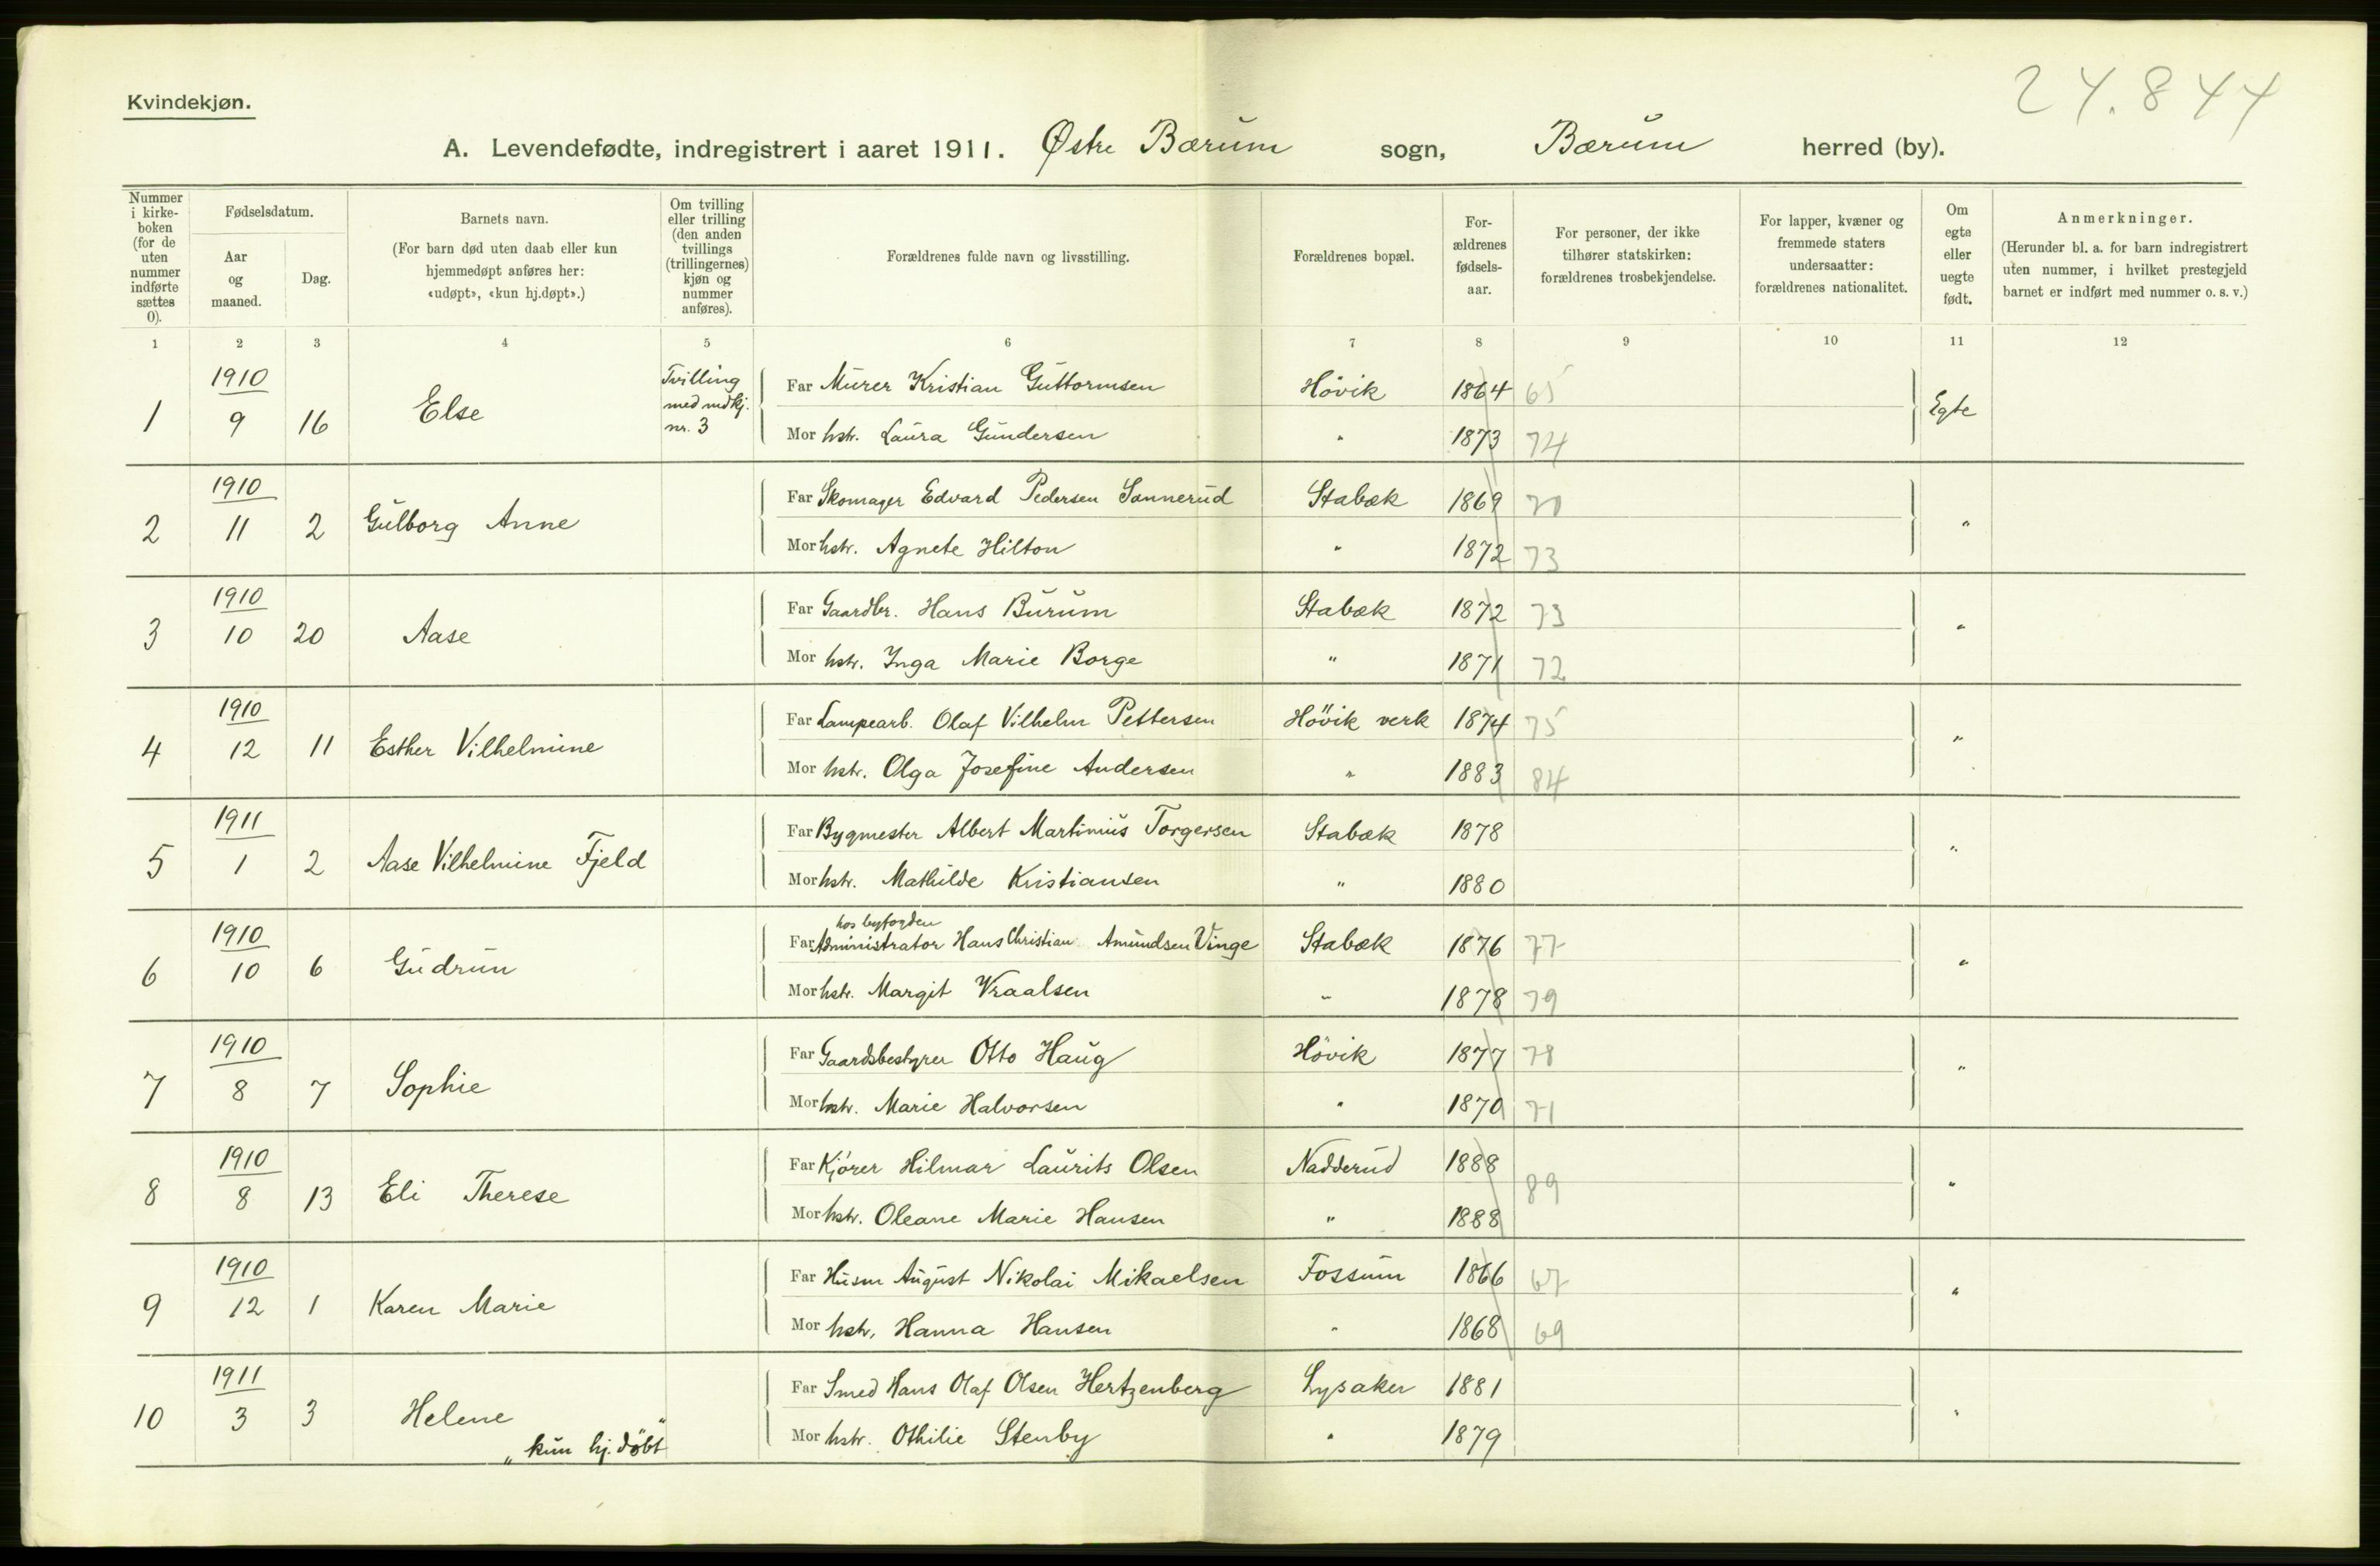 24.844
Kvindekjøn.
A. Levendefødte, indregistrert i aaret 1911. Østre Bærum sogn, Bærum herred (by).
Nummer i kirke-boken (for de uten nummer indførte sættes 0).
Fødselsdatum.
Aar og maaned.
Dag.
Barnets navn.
(For barn død uten daab eller kun hjemmedøpt anføres her: «udøpt», «kun hj.døpt».)
Om tvilling eller trilling (den anden tvillings (trillingernes) kjøn og nummer anføres).
Forældrenes fulde navn og livsstilling.
Forældrenes bopæl.
For-ældrenes fødsels-aar.
For personer, der ikke tilhører statskirken: forældrenes trosbekjendelse.
For lapper, kvæner og fremmede staters undersaatter: forældrenes nationalitet.
Om egte eller uegte født.
Anmerkninger.
(Herunder bl. a. for barn indregistrert uten nummer, i hvilket prestegjeld barnet er indført med nummer o. s. v.)
1 2 3 4 5 6 7 8 9 10 11 12
1 1910 9 16 Else Tvilling med mdkj. nr. 3
Far Murer Kristian Guttormsen Hövik 1864 65 Egte
Mor hstr. Laura Gundersen " 1873 74
2 1910 11 2 Gulborg Anne
Far Skomager Edvard Pedersen Sannerud Stabæk 1869 70 "
Mor hstr. Agnete Hilton " 1872 73
3 1910 10 20 Aase
Far Gaardbr. Hans Burum Stabæk 1872 73 "
Mor hstr. Inga Marie Borge " 1871 72
4 1910 12 11 Esther Vilhelmine
Far Lampearb. Olaf Vilhelm Pettersen Hövik verk 1874 75 "
Mor hstr. Olga Josefine Andersen " 1883 84
5 1911 1 2 Aase Vilhelmine Fjeld
Far Bygmester Albert Martinius Torgersen Stabæk 1878 "
Mor hstr. Mathilde Kristiansen " 1880
6 1910 10 6 Gudrun
hos byfogden
Far Administrator Hans Christian Amundsen Vinge Stabæk 1876 77 "
Mor hstr. Margit Vraalsen " 1878 79
7 1910 8 7 Sophie
Far Gaardsbestyrer Otto Haug Hövik 1877 78 "
Mor hstr. Marie Halvorsen " 1870 71
8 1910 8 13 Eli Therese
Far Kjörer Hilmar Laurits Olsen Nadderud 1888 89 "
Mor hstr. Oleane Marie Hansen " 1888
9 1910 12 1 Karen Marie
Far Husm August Nikolai Mikaelsen Fossum 1866 67 "
Mor hstr. Hanna Hansen " 1868 69
10 1911 3 3 Helene
Far Smed Hans Olaf Olsen Hertzenberg Lysaker 1881 "
„kun hj. döbt"
Mor hstr. Othilie Stenby " 1879